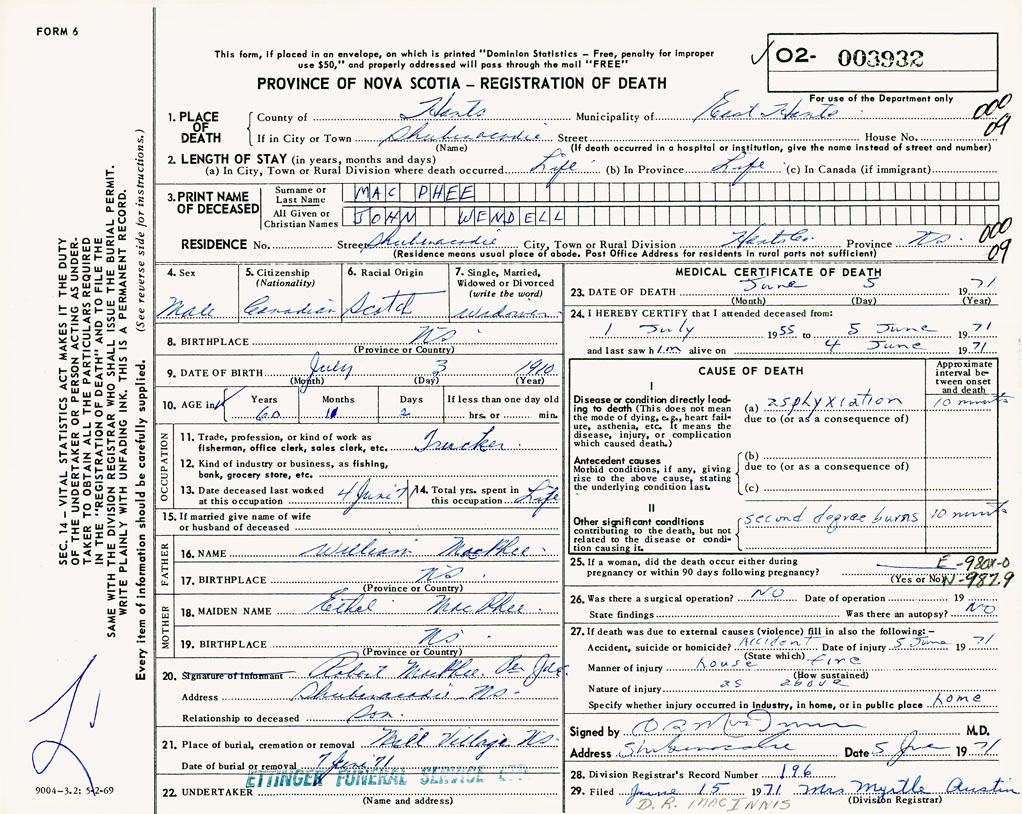 FORM 6
This form, if placed in an envelope, on which is printed "Dominion Statistics – Free, penalty for improper
use $50," and properly addressed will pass through the mail "FREE"
PROVINCE OF NOVA SCOTIA – REGISTRATION OF DEATH
02- 003932
For use of the Department only
1. PLACE OF DEATH
County of Hants Municipality of East Hants
000
09
If in City or Town Shubenacadie Street House No.
(Name) (If death occurred in a hospital or institution, give the name instead of street and number)
2. LENGTH OF STAY (in years, months and days)
(a) In City, Town or Rural Division where death occurred Life (b) In Province Life (c) In Canada (if immigrant)
3. PRINT NAME OF DECEASED
Surname or Last Name MAC PHEE
All Given or Christian Names JOHN WENDELL
RESIDENCE No. Street Shubenacadie City, Town or Rural Division Hants Co. Province N.S.
000
09
(Residence means usual place of abode. Post Office Address for residents in rural parts not sufficient)
4. Sex Male
5. Citizenship (Nationality) Canadian
6. Racial Origin Scotch
7. Single, Married, Widowed or Divorced (write the word) Widower
8. BIRTHPLACE NS
(Province or Country)
9. DATE OF BIRTH July 3 1910
(Month) (Day) (Year)
10. AGE in Years 60 Months 11 Days 2 If less than one day old hrs. or min.
OCCUPATION
11. Trade, profession, or kind of work as
fisherman, office clerk, sales clerk, etc. Trucker
12. Kind of industry or business, as fishing,
bank, grocery store, etc.
13. Date deceased last worked
at this occupation 4 June 71
14. Total yrs. spent in
this occupation Life
15. If married give name of wife
or husband of deceased
FATHER
16. NAME William MacPhee
17. BIRTHPLACE NS
(Province or Country)
MOTHER
18. MAIDEN NAME Ethel MacPhee
19. BIRTHPLACE NS
(Province or Country)
20. Signature of informant Robert MacPhee Per
Address Shubenacadie NS
Relationship to deceased Son
21. Place of burial, cremation or removal Mill Village NS
Date of burial or removal 7 June 71
22. UNDERTAKER ETTINGER FUNERAL SERVICE LTD
(Name and address)
MEDICAL CERTIFICATE OF DEATH
23. DATE OF DEATH June 5 1971
(Month) (Day) (Year)
24. I HEREBY CERTIFY that I attended deceased from:
1 July 1955 to 5 June 1971
and last saw him alive on 4 June 1971
CAUSE OF DEATH
Approximate interval between onset and death
I
Disease or condition directly leading to death (This does not mean the mode of dying, e.g., heart failure, asthenia, etc. It means the disease, injury, or complication which caused death.)
(a) asphyxiation 10 minutes
due to (or as a consequence of)
Antecedent causes
Morbid conditions, if any, giving rise to the above cause, stating the underlying condition last.
(b)
due to (or as a consequence of)
(c)
II
Other significant conditions
contributing to the death, but not related to the disease or condition causing it.
second degree burns 10 minutes
25. If a woman, did the death occur either during
pregnancy or within 90 days following pregnancy?
(Yes or No)
N-987.9
26. Was there a surgical operation? NO Date of operation 19
State findings Was there an autopsy? NO
27. If death was due to external causes (violence) fill in also the following:–
Accident, suicide or homicide? Accident Date of injury 5 June 1971
(State which)
Manner of injury house fire
(How sustained)
Nature of injury as above
Specify whether injury occurred in industry, in home, or in public place home
Signed by M.D.
Address Shubenacadie Date 5 June 1971
28. Division Registrar's Record Number 196
29. Filed June 15 1971 Mrs Myrtle Austin
(Division Registrar)
D.R. MACINNIS
SEC. 14 – VITAL STATISTICS ACT MAKES IT THE DUTY
OF THE UNDERTAKER OR PERSON ACTING AS UNDER-
TAKER TO OBTAIN ALL THE PARTICULARS REQUIRED
IN THE "REGISTRATION OF DEATH" AND TO FILE THE
SAME WITH THE DIVISION REGISTRAR WHO SHALL ISSUE THE BURIAL PERMIT.
WRITE PLAINLY WITH UNFADING INK. THIS IS A PERMANENT RECORD.
Every item of information should be carefully supplied. (See reverse side for instructions.)
9004-3.2: 5-2-69